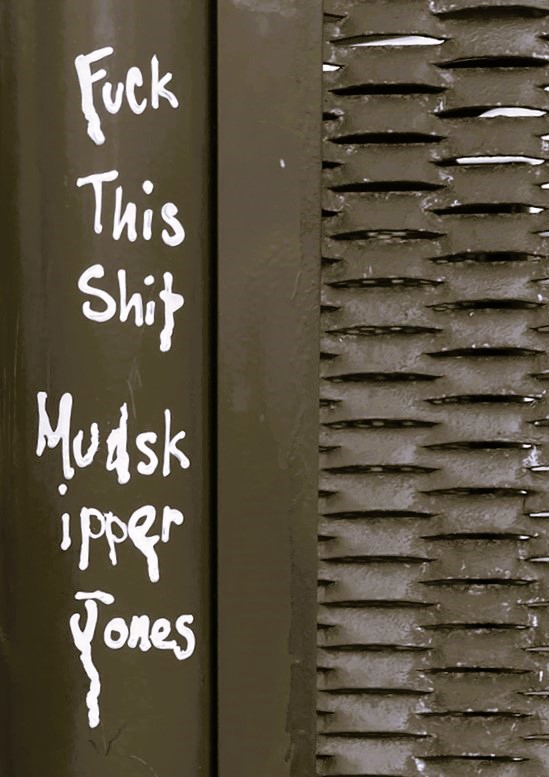 Fuck
This
Shit
Mudsk
ipper
Jones